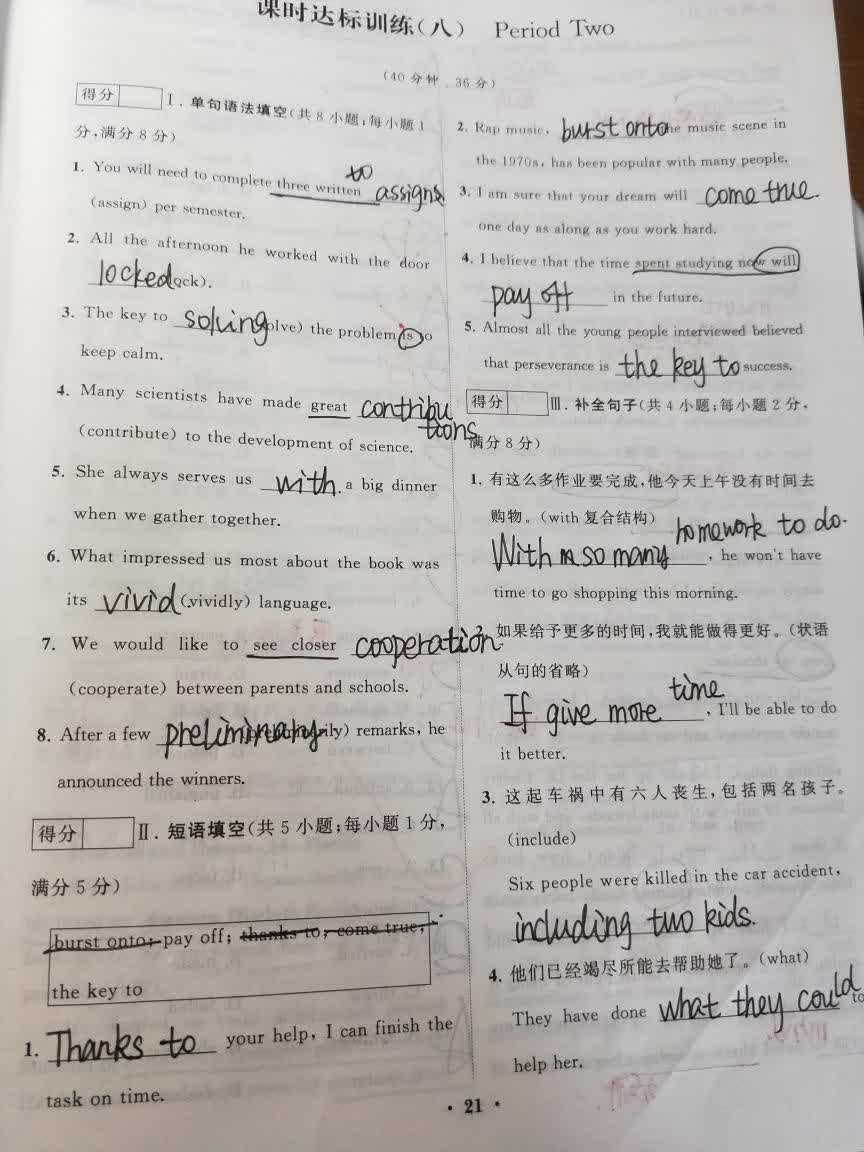 课时达标训练(八) Period Two
(40分钟 36分)
得分 Ⅰ.单句语法填空(共8小题;每小题1
分,满分8分)
1. You will need to complete three written to assigns
(assign) per semester.
2. All the afternoon he worked with the door
locked ock).
3. The key to soluing olve) the problem is to
keep calm.
4. Many scientists have made great contribu
tions
(contribute) to the development of science.
5. She always serves us with a big dinner
when we gather together.
6. What impressed us most about the book was
its vivid (vividly) language.
7. We would like to see closer cooperation
(cooperate) between parents and schools.
8. After a few preliminary rily) remarks, he
announced the winners.
得分 Ⅱ.短语填空(共5小题;每小题1分,
满分5分)
burst onto; pay off; thanks to; come true;
the key to
1. Thanks to your help, I can finish the
task on time.
2. Rap music, burst onto he music scene in
the 1970s, has been popular with many people.
3. I am sure that your dream will come true.
one day as along as you work hard.
4. I believe that the time spent studying now will
pay off in the future.
5. Almost all the young people interviewed believed
that perseverance is the key to success.
得分 Ⅲ.补全句子(共4小题;每小题2分,
满分8分)
1. 有这么多作业要完成,他今天上午没有时间去
购物。(with复合结构)
homework to do.
With so many , he won't have
time to go shopping this morning.
2. 如果给予更多的时间,我就能做得更好。(状语
从句的省略)
time
If give more , I'll be able to do
it better.
3. 这起车祸中有六人丧生,包括两名孩子。
(include)
Six people were killed in the car accident,
including two kids.
4. 他们已经竭尽所能去帮助她了。(what)
They have done what they could to
help her.
· 21 ·